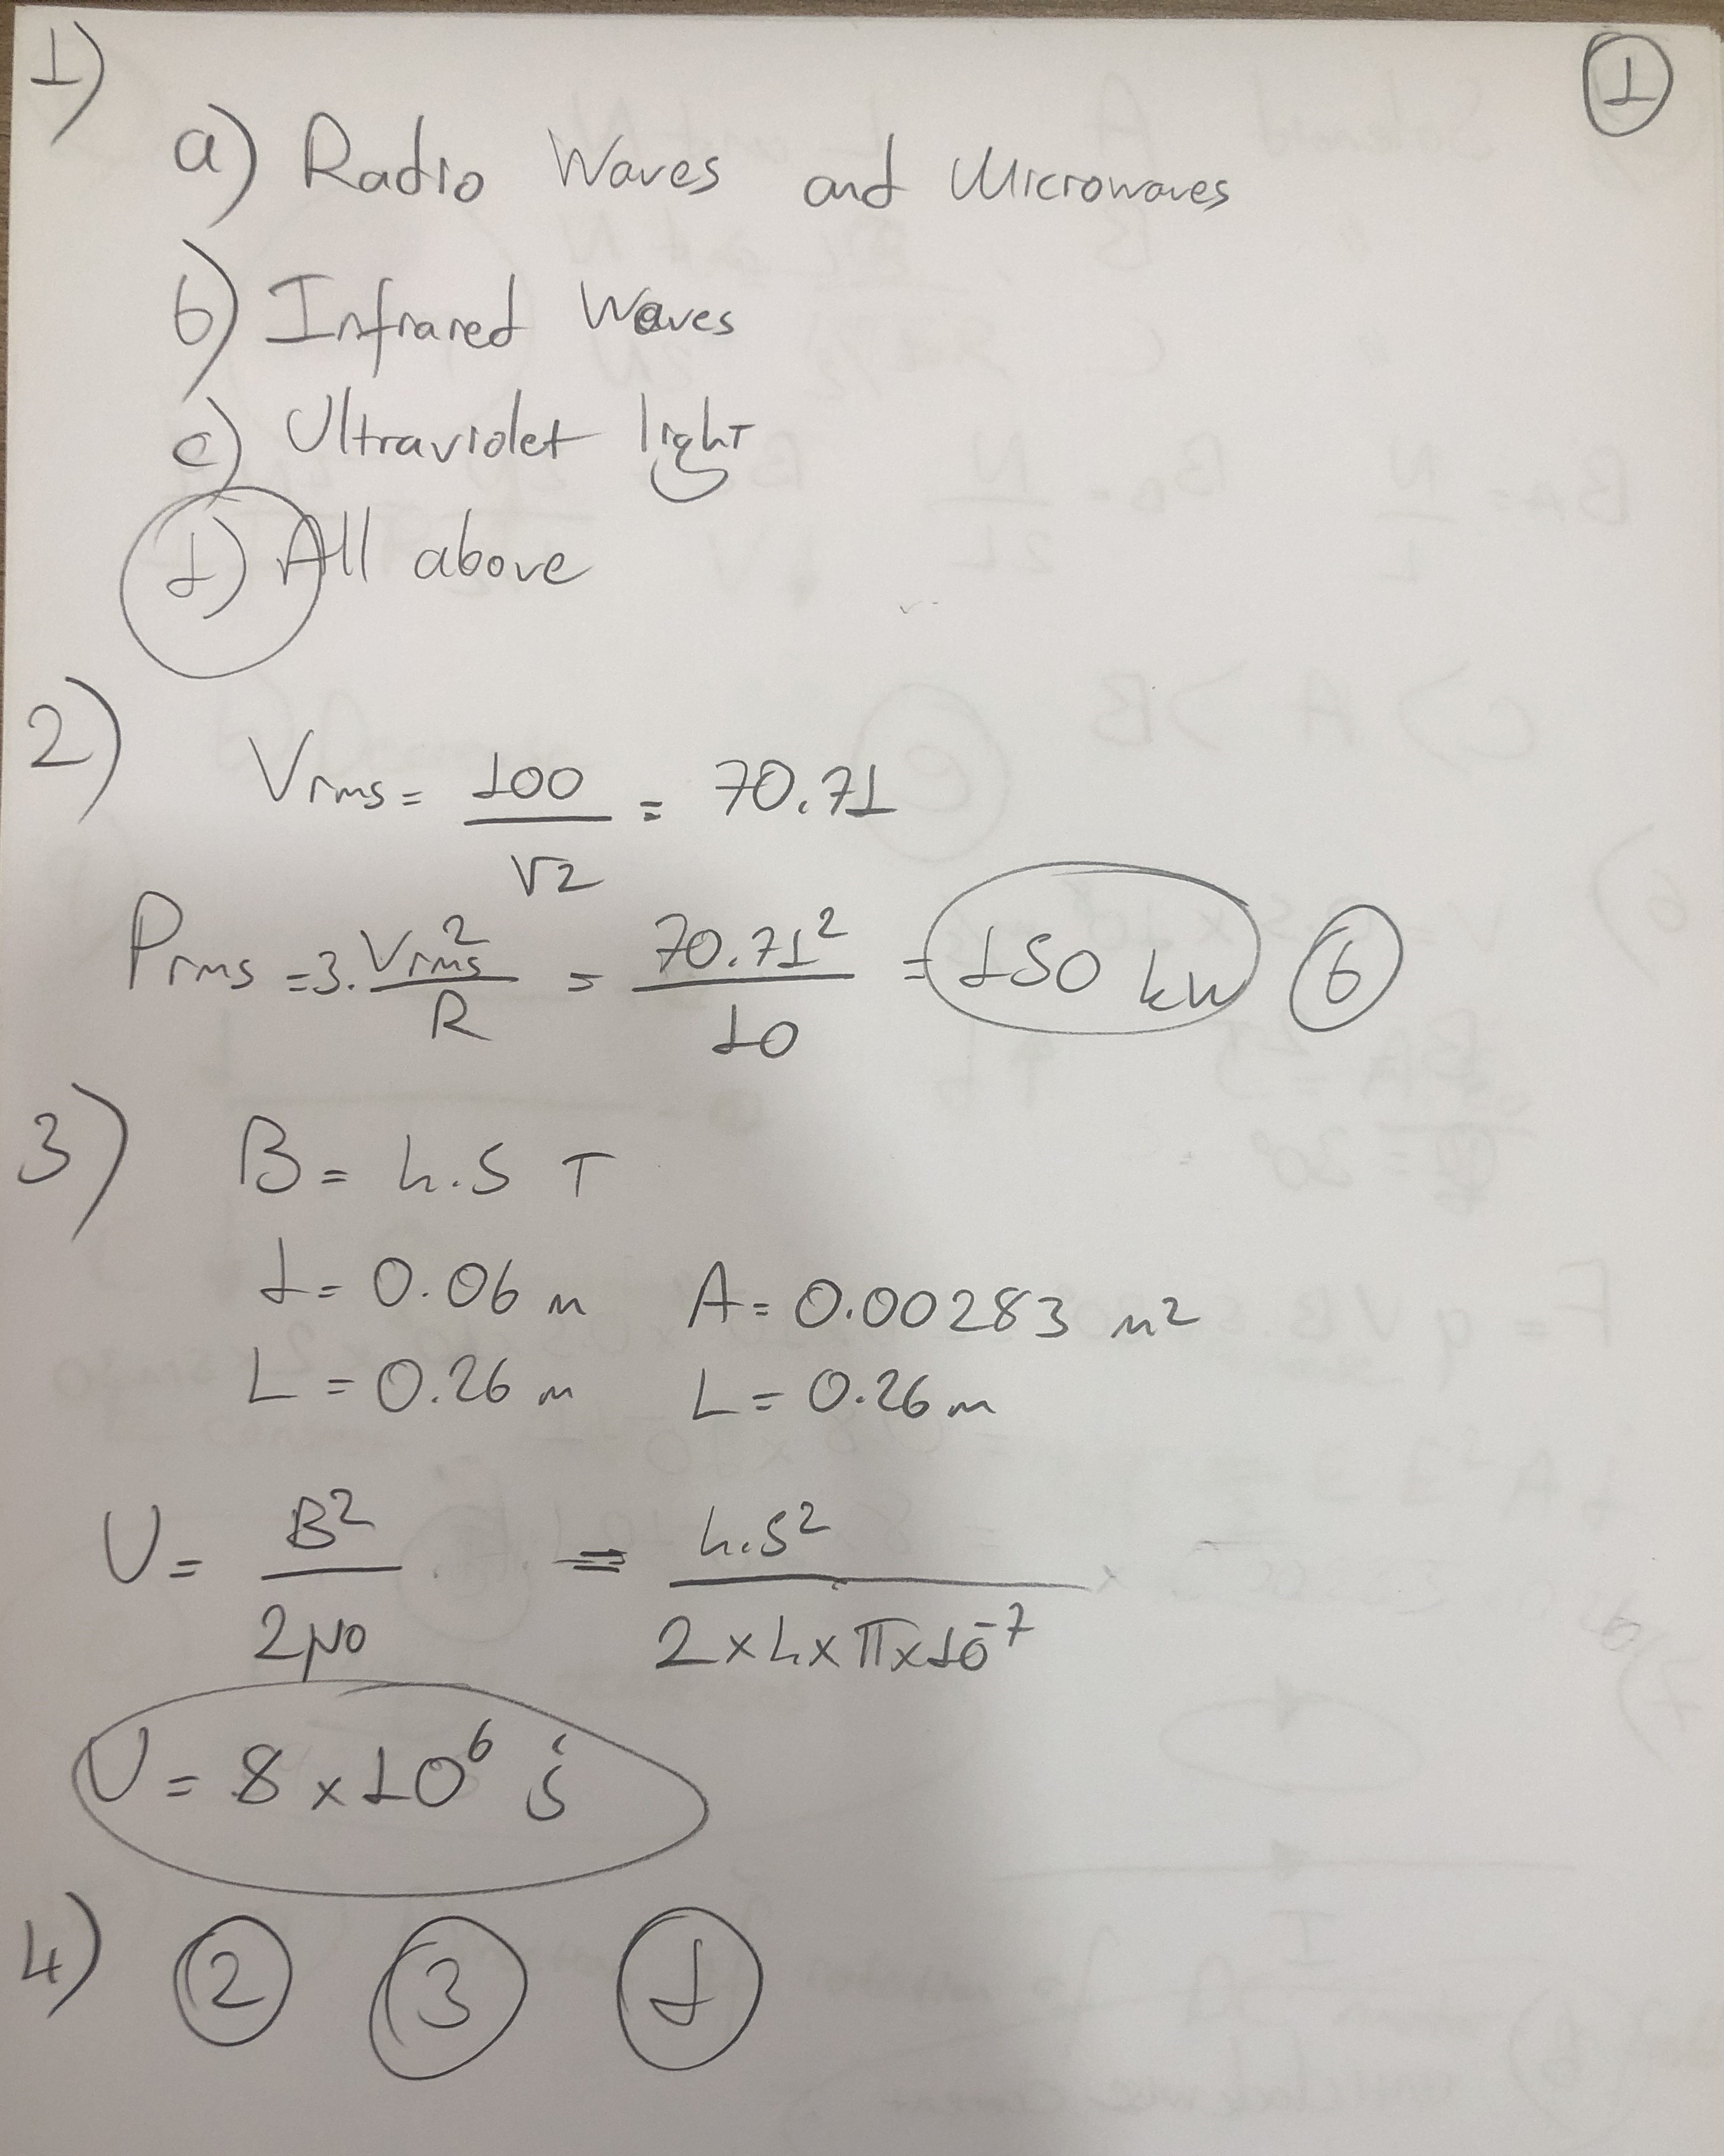 1) ①
a) Radio Waves and Microwaves
b) Infrared Waves
c) Ultraviolet light
d) All above
2) Vrms = 100/√2 = 70.71
Prms = 3. Vrms²/R = 70.71²/10 = 150 kw ⑥
3) B = 4.5 T
d = 0.06 m A = 0.00283 m²
L = 0.26 m L = 0.26 m
U = B²/2μ0 = 4.5²/2x4xπx10⁻⁷
U = 8x10⁶ j
4) ② ③ d